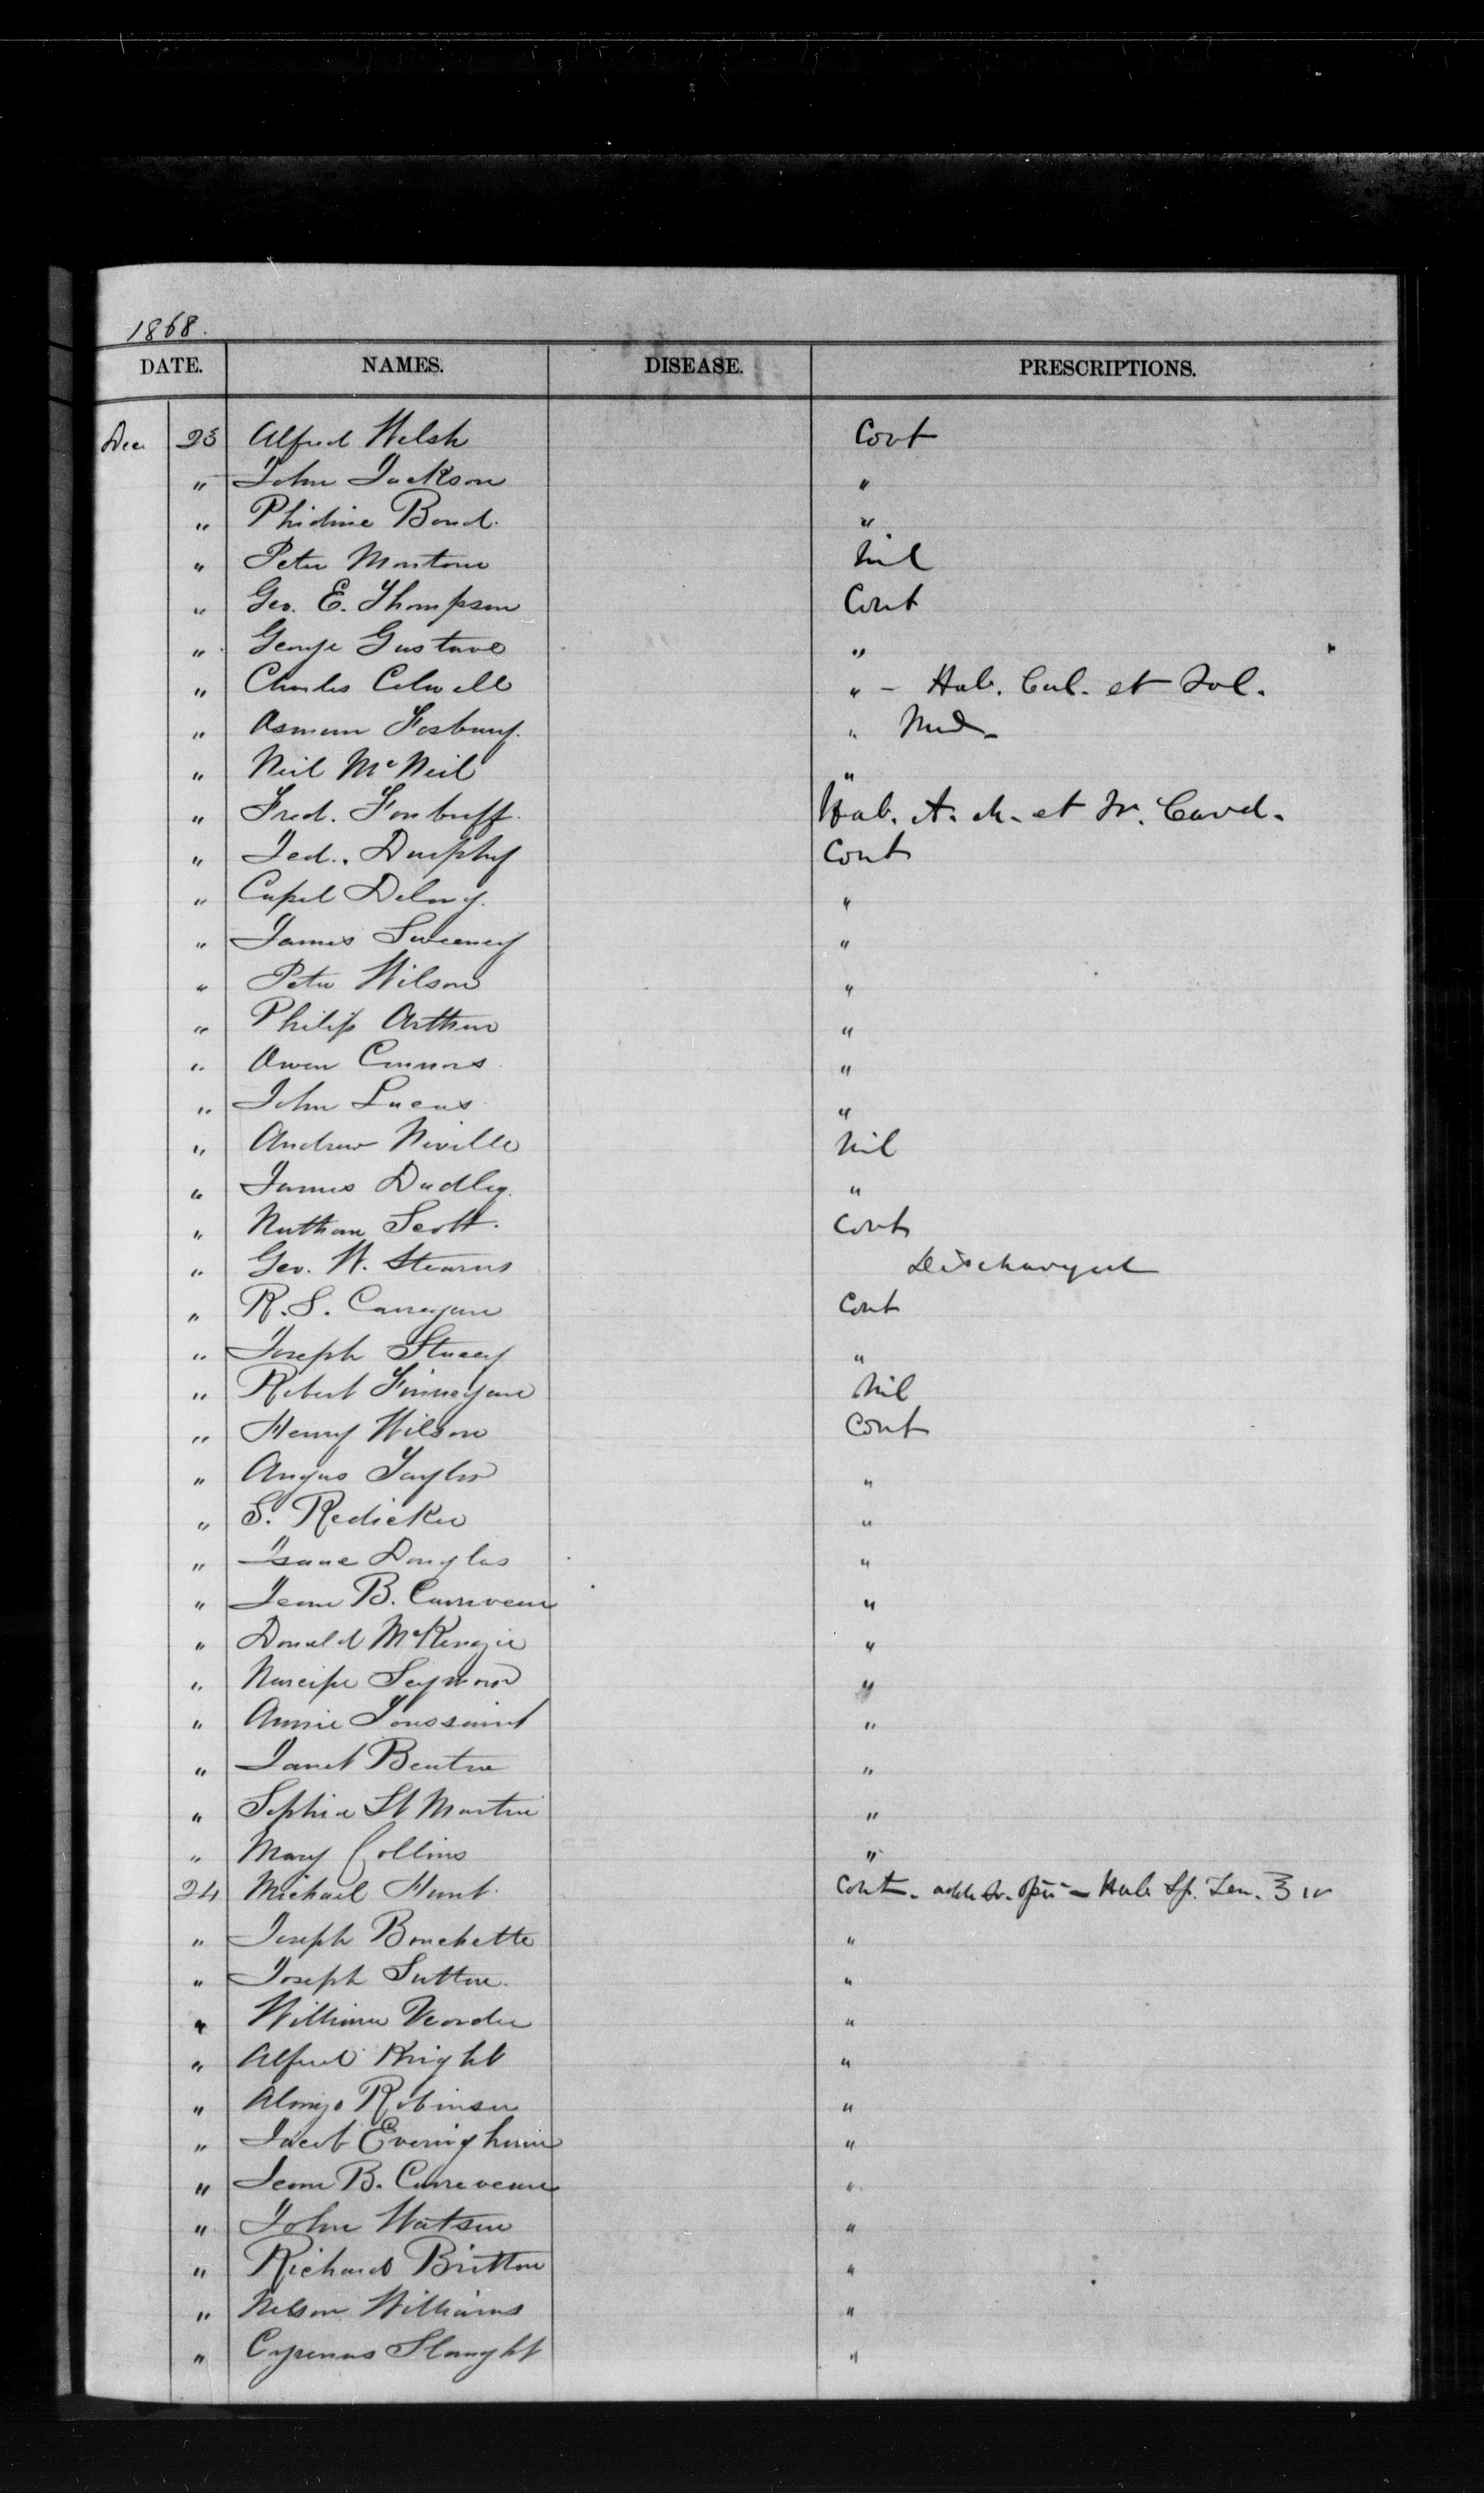 1868.
DATE. NAMES. DISEASE. PRESCRIPTIONS.
Dec 23 Alfred Welsh Cont
" John Jackson "
" Phidime Bond. "
" Peter Montour Nil
" Geo. E. Thompson Cont
" George Gustave "
" Charles Colwell " - Hab. Cal. et Jal.
" Osmam Fosbury. "
" Neil McNeil "
" Fred. Forbuff. Hab. et Tr. Card.
" Jed. Dunphy Cont
" Capel Delany. "
" James Sweeney "
" Peter Wilson "
" Philip Arthur "
" Owen Connors "
" John Lucas "
" Andrew Neville Nil
" James Dudley. "
" Nathan Scott. Cont
" Geo. W. Stearns Discharged
" R. S. Carregan Cont
" Joseph Stacey "
" Robert Finnegan Nil
" Henry Wilson Cont
" Angus Taylor "
" S. Redicker "
" Isaac Douglas "
" Jean B. Carreveau "
" Donald McKenzie "
" Narcisse Seymour "
" Annie Toussaint "
" Janet Bentre "
" Sophie St Martin "
" Mary Collins "
24 Michael Hunt. Cont. adde Tr. Opii - Hab Sp. Ten. ʒ iv
" Joseph Bouchette "
" Joseph Sutton. "
" William Veorder "
" Alfred Knight "
" Alonzo Robinson "
" Jacob Everingham "
" Jean B. Carreveau "
" John Watson "
" Richard Britton "
" Nelson Williams "
" Cyrenus Slaught "